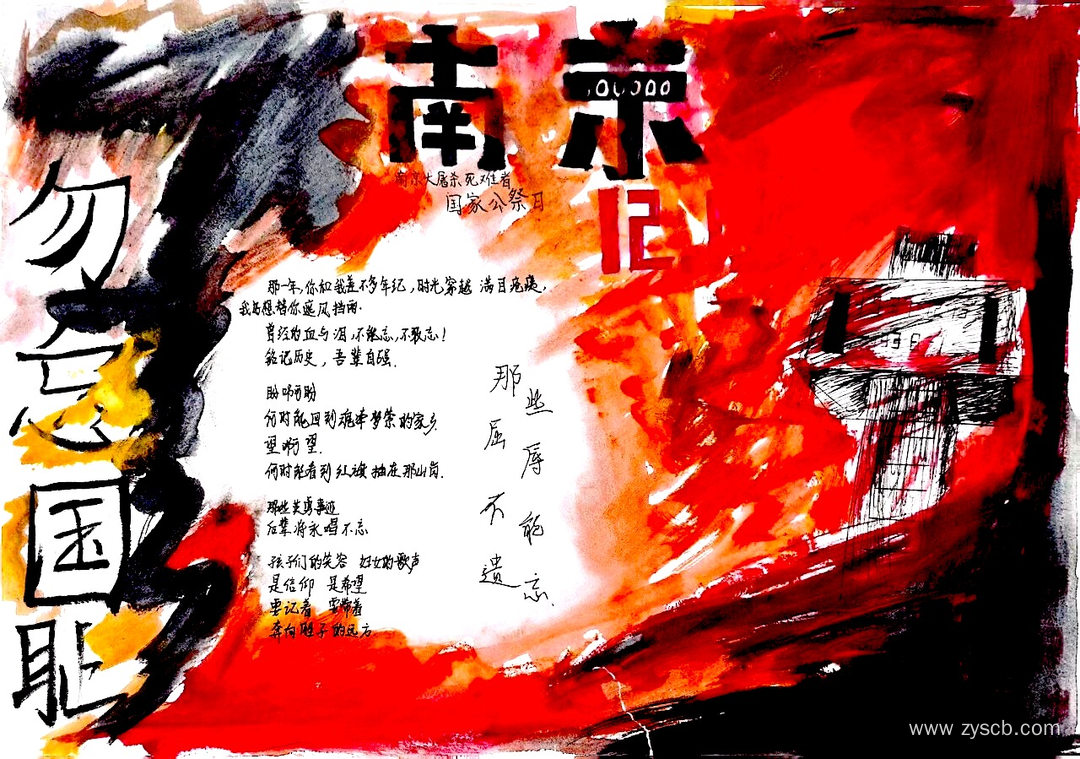 南京
南京大屠杀死难者
国家公祭日
12
勿忘国耻
那一年,你和我差不多年纪,时光穿越 满目疮痍,
我多想替你遮风挡雨.
曾经的血与泪,不能忘,不敢忘!
铭记历史,吾辈自强.
盼啊盼
何时能回到魂牵梦萦的家乡
望啊望.
何时能看到红旗插在那山岗.
那些英勇事迹
后辈将永唱不忘
孩子们的笑容 妇女的歌声
是信仰 是希望
要记着 要带着
奔向 的远方
那些
屈辱
不能
遗忘.
www.zyscb.com